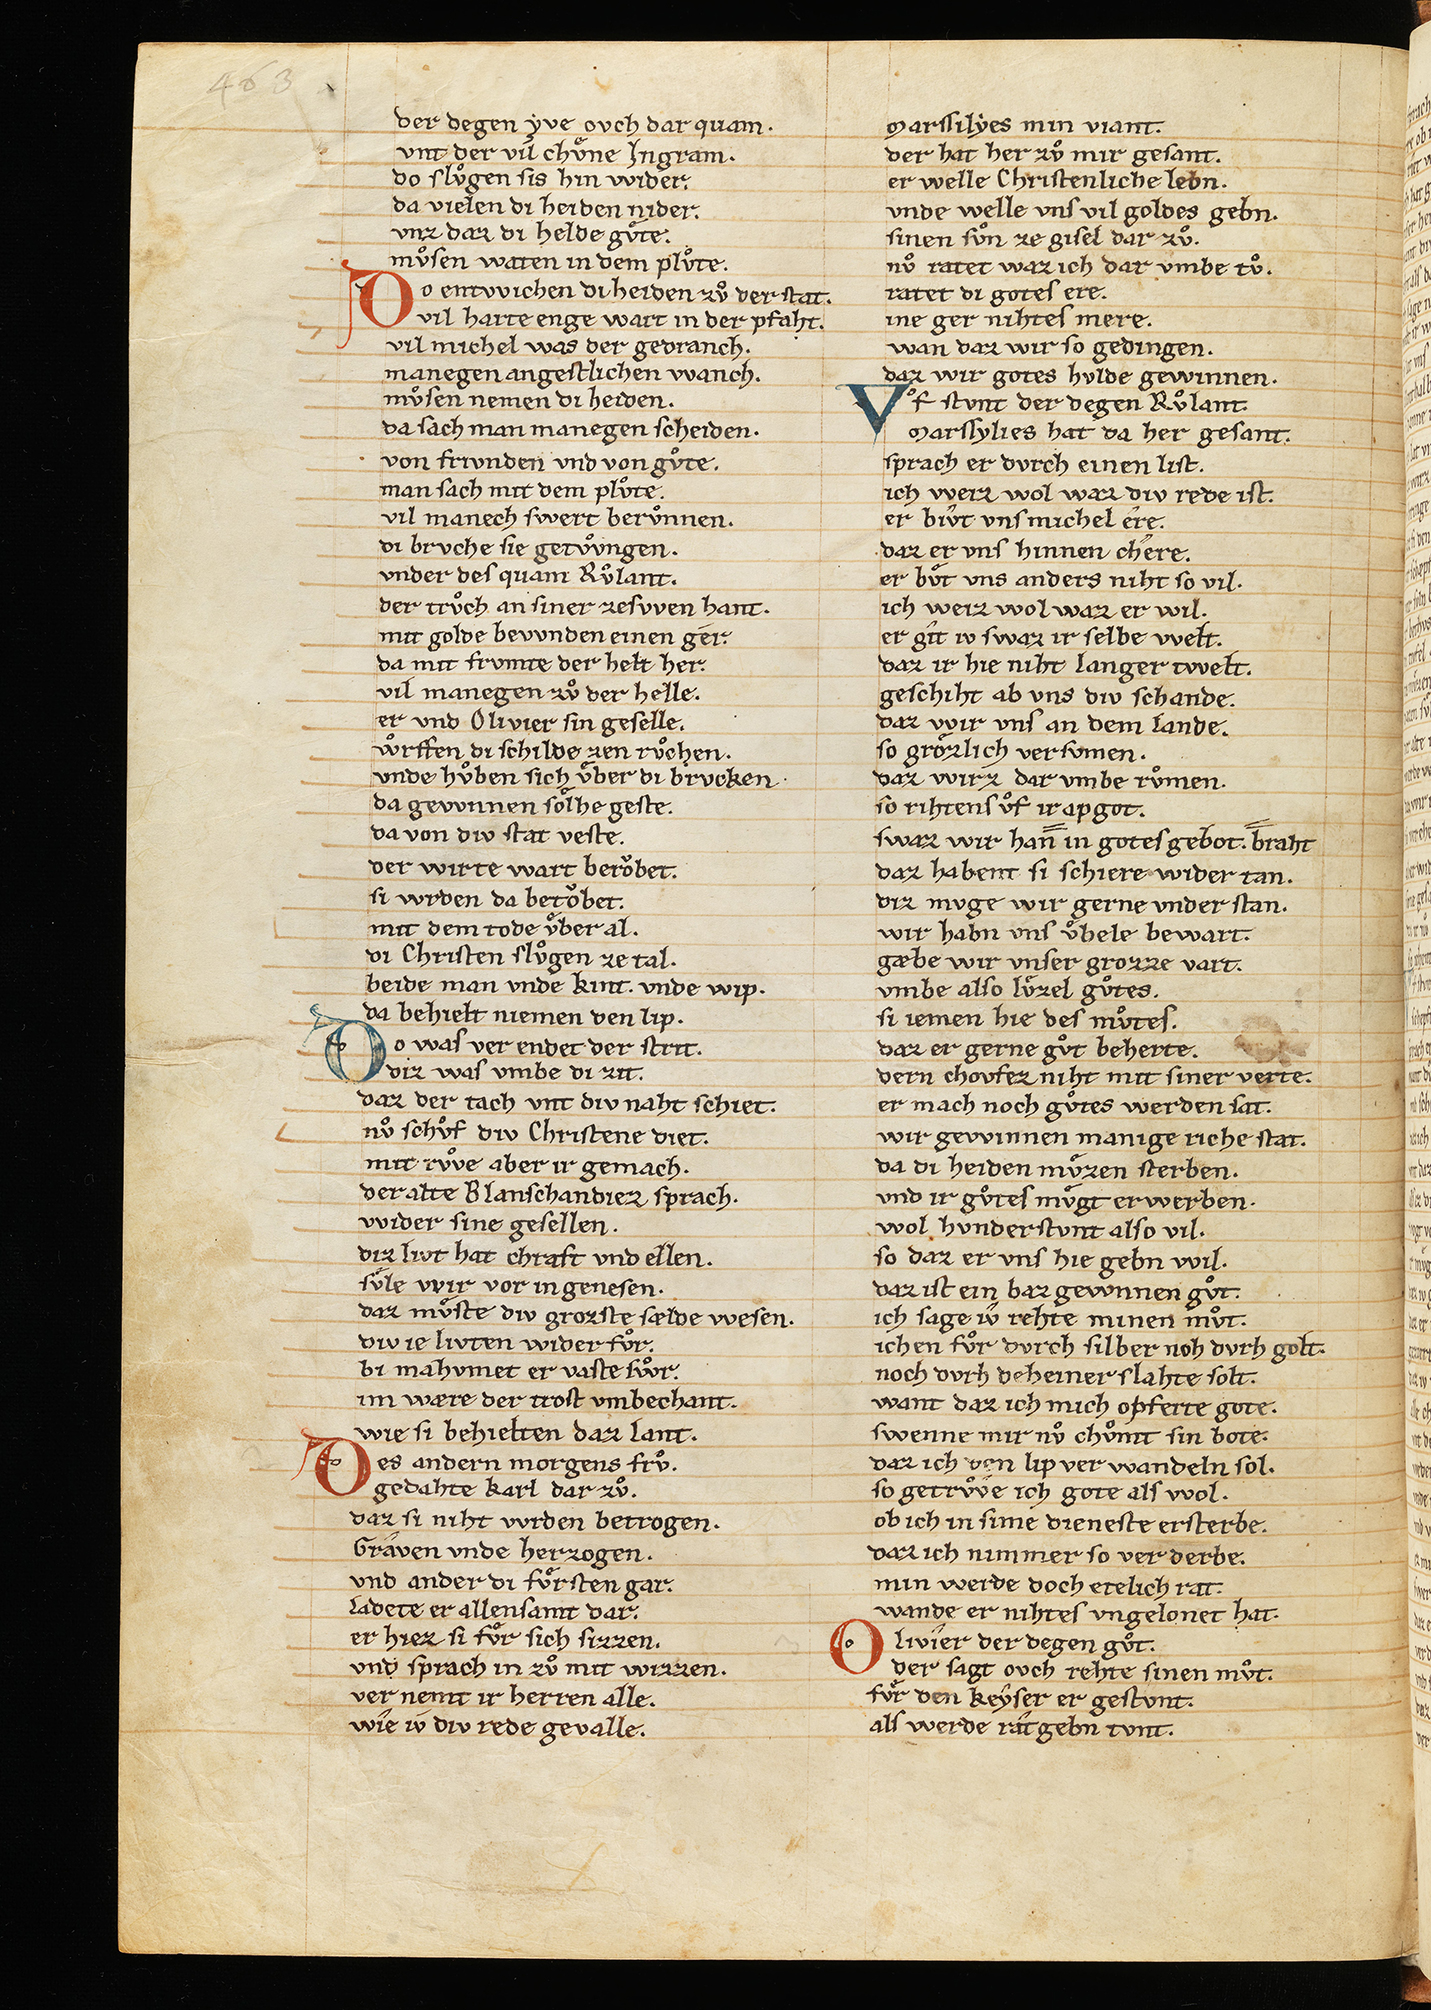 463
der degen ẏve ovch dar quam.
vnt der vil chvͦne Ingram.
do slvͦgen sis hin wider.
da vielen di heiden nider.
vnz daz di helde gvͦte.
mvͦsen waten in dem plvͦte.
Do entwichen di heiden zvͦ der stat.
vil harte enge wart in der pfaht.
vil michel was der gedranch.
manegen angestlichen wanch.
mvͦsen nemen di heiden.
da sach man manegen scheiden.
von frivnden vnd von gvͦte.
man sach mit dem plvͦte.
vil manech swert bervͦnnen.
di brvche sie getvͦvngen.
vnder des quam Rvͦlant.
der trvͦch an siner zesvven hant.
mit golde bevvnden einen geir.
da mit frvmte der helt her.
vil manegen zvͦ der helle.
er vnd Olivier sin geselle.
wͦrffen di schilde zen rvͦchen.
vnde hvͦben sich vͦber di brvcken.
da gewnnen soͤlhe geste.
da von div stat veste.
der wirte wart beroͮbet.
si wrden da betoͮbet.
mit dem tode vͦber al.
di Christen slvͦgen ze tal.
beide man vnde kint. vnde wip.
da behielt niemen den lip.
Do was ver endet der strit.
diz was vmbe di zit.
daz der tach vnt div naht schiet.
nvͦ schvͦf div Christene diet.
mit rvͦve aber ir gemach.
der alte Blanschandiez sprach.
wider sine gesellen.
diz livt hat chraft vnd ellen.
svͦle wir vor in genesen.
daz mvͦste div grozste sælde wesen.
div ie livten wider fvͦr.
bi mahvmet er vaste swͦr.
im wære der trost vmbechant.
wie si behielten daz lant.
Des andern morgens frvͦ.
gedahte karl dar zvͦ.
daz si niht wrden betrogen.
Graven vnde herzogen.
vnd ander di fvͦrsten gar.
ladete er allensamt dar.
er hiez si fvͦr sich sizzen.
vnd sprach in zvͦ mit wizzen.
ver nemt ir herren alle.
wie iv div rede gevalle.
marssilẏes min viant.
der hat her zvͦ mir gesant.
er welle Christenliche lebn.
vnde welle vns vil goldes gebn.
sinen svͦn ze gisel dar zvͦ.
nvͦ ratet waz ich dar vmbe tvͦ.
ratet di gotes ere.
ine ger nihtes mere.
wan daz wir so gedingen.
daz wir gotes hvlde gewinnen.
Vͦf stvnt der degen Rvͦlant.
marssylies hat da her gesant.
sprach er dvrch einen list.
ich weiz wol waz div rede ist.
er bivt vns michel ere.
daz er vns hinnen chere.
er bvͦt vns anders niht so vil.
ich weiz wol waz er wil.
er git iv swaz ir selbe welt.
daz ir hie niht langer twelt.
geschiht ab vns div schande.
daz wir vns an dem lande.
so groͤzlich versvmen.
daz wirz dar vmbe rvͦmen.
so rihtens vͦf ir apgot.
swaz wir han in gotes gebot. braht
daz habent si schiere wider tan.
diz mvge wir gerne vnder stan.
wir habn vns vͦbele bewart.
gæbe wir vnser grozze vart.
vmbe also lvͦzel gvͦtes.
si iemen hie des mvͦtes.
daz er gerne gvͦt beherte.
dern chovfez niht mit siner verte.
er mach noch gvͦtes werden sat.
wir gewinnen manige riche stat.
da di heiden mvͦzen sterben.
vnd ir gvͦtes mvͦgt erwerben.
wol hvnderstvnt also vil.
so daz er vns hie gebn wil.
daz ist ein baz gewnnen gvͦt.
ich sage iv rehte minen mvͦt.
ichen fvͦr dvrch silber noh dvrh golt.
noch dvrh deheiner slahte solt.
want daz ich mich opferte gote.
swenne mir nvͦ chvͦmt sin bote.
daz ich den lip ver wandeln sol.
so getrvͦve ich gote als wol.
ob ich in sime dieneste ersterbe.
daz ich nimmer so ver derbe.
min werde doch etelich rat.
wande er nihtes vngelonet hat.
Olivier der degen gvͦt.
der sagt ovch rehte sinen mvͦt.
fvͦr den keẏser er gestvnt.
als werde rat gebn tvnt.